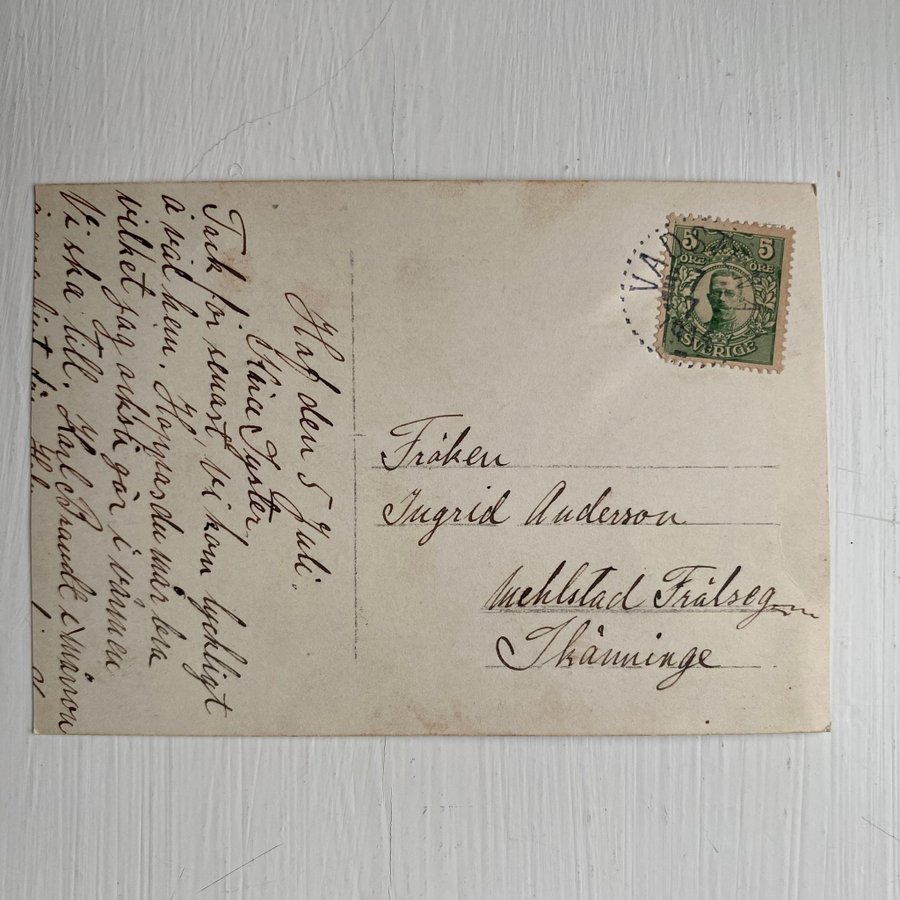 Hof den 5 Juli.
Kära Syster
Tack för senast, vi kom lyckligt
å väl hem. Hoppas du mår bra
vilket jag också gör i värmen
Vi ska till Karl i morron
5 5
ÖRE ÖRE
SVERIGE
VAD
Fröken
Ingrid Anderson
Mehlstad Frälseg
Skänninge